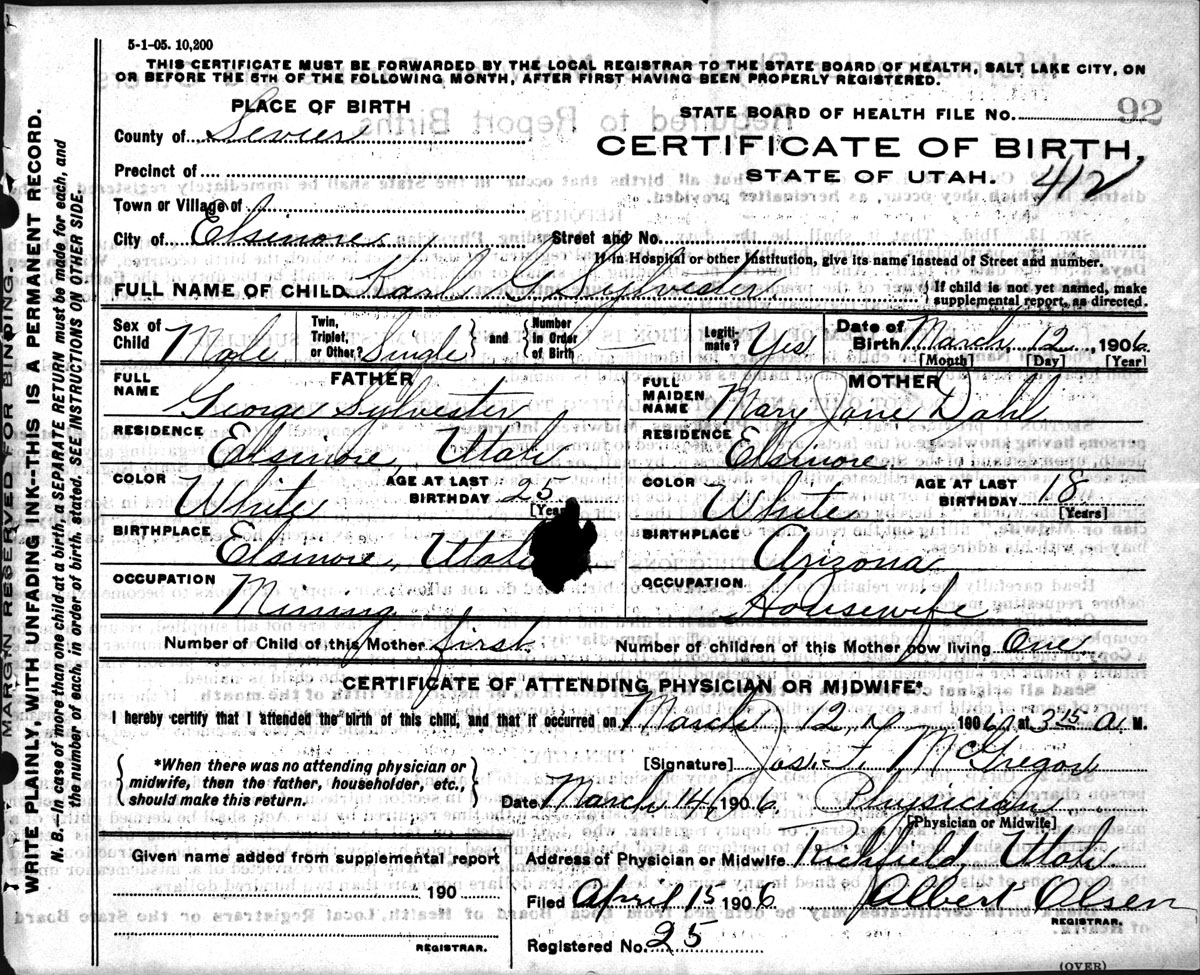 5-1-05. 10,200
THIS CERTIFICATE MUST BE FORWARDED BY THE LOCAL REGISTRAR TO THE STATE BOARD OF HEALTH, SALT LAKE CITY, ON
OR BEFORE THE 5TH OF THE FOLLOWING MONTH, AFTER FIRST HAVING BEEN PROPERLY REGISTERED.
PLACE OF BIRTH
STATE BOARD OF HEALTH FILE NO. 92
County of Sevier
CERTIFICATE OF BIRTH,
Precinct of
STATE OF UTAH. 412
Town or Village of
City of Elsinore Street and No.
If in Hospital or other Institution, give its name instead of Street and number.
FULL NAME OF CHILD Karl G. Sylvester { If child is not yet named, make supplemental report, as directed.
Sex of Child Male Twin, Triplet, or Other? Single } and { Number in Order of Birth Legiti- mate? Yes Date of Birth March 12, 1906
[Month] [Day] [Year]
FATHER
FULL NAME George Sylvester
RESIDENCE Elsinore, Utah
COLOR White AGE AT LAST BIRTHDAY 25
BIRTHPLACE Elsinore, Utah
OCCUPATION Mining
MOTHER
FULL MAIDEN NAME Mary Jane Dahl
RESIDENCE Elsinore
COLOR White AGE AT LAST BIRTHDAY 18
[Years]
BIRTHPLACE Arizona
OCCUPATION Housewife
Number of Child of this Mother first Number of children of this Mother now living One
CERTIFICATE OF ATTENDING PHYSICIAN OR MIDWIFE*
I hereby certify that I attended the birth of this child, and that it occurred on March 12, 1906, at 3 15 A M.
*When there was no attending physician or
midwife, then the father, householder, etc.,
should make this return.
[Signature] Jos. F. McGregor
Date March 14 1906 Physician
[Physician or Midwife]
Given name added from supplemental report
190
REGISTRAR.
Address of Physician or Midwife Richfield, Utah
Filed April 15 1906 Albert Olsen
REGISTRAR.
Registered No. 25
(OVER)
MARGIN RESERVED FOR BINDING.
WRITE PLAINLY, WITH UNFADING INK--THIS IS A PERMANENT RECORD.
N. B.--In case of more than one child at a birth, a SEPARATE RETURN must be made for each, and
the number of each, in order of birth, stated. SEE INSTRUCTIONS ON OTHER SIDE.